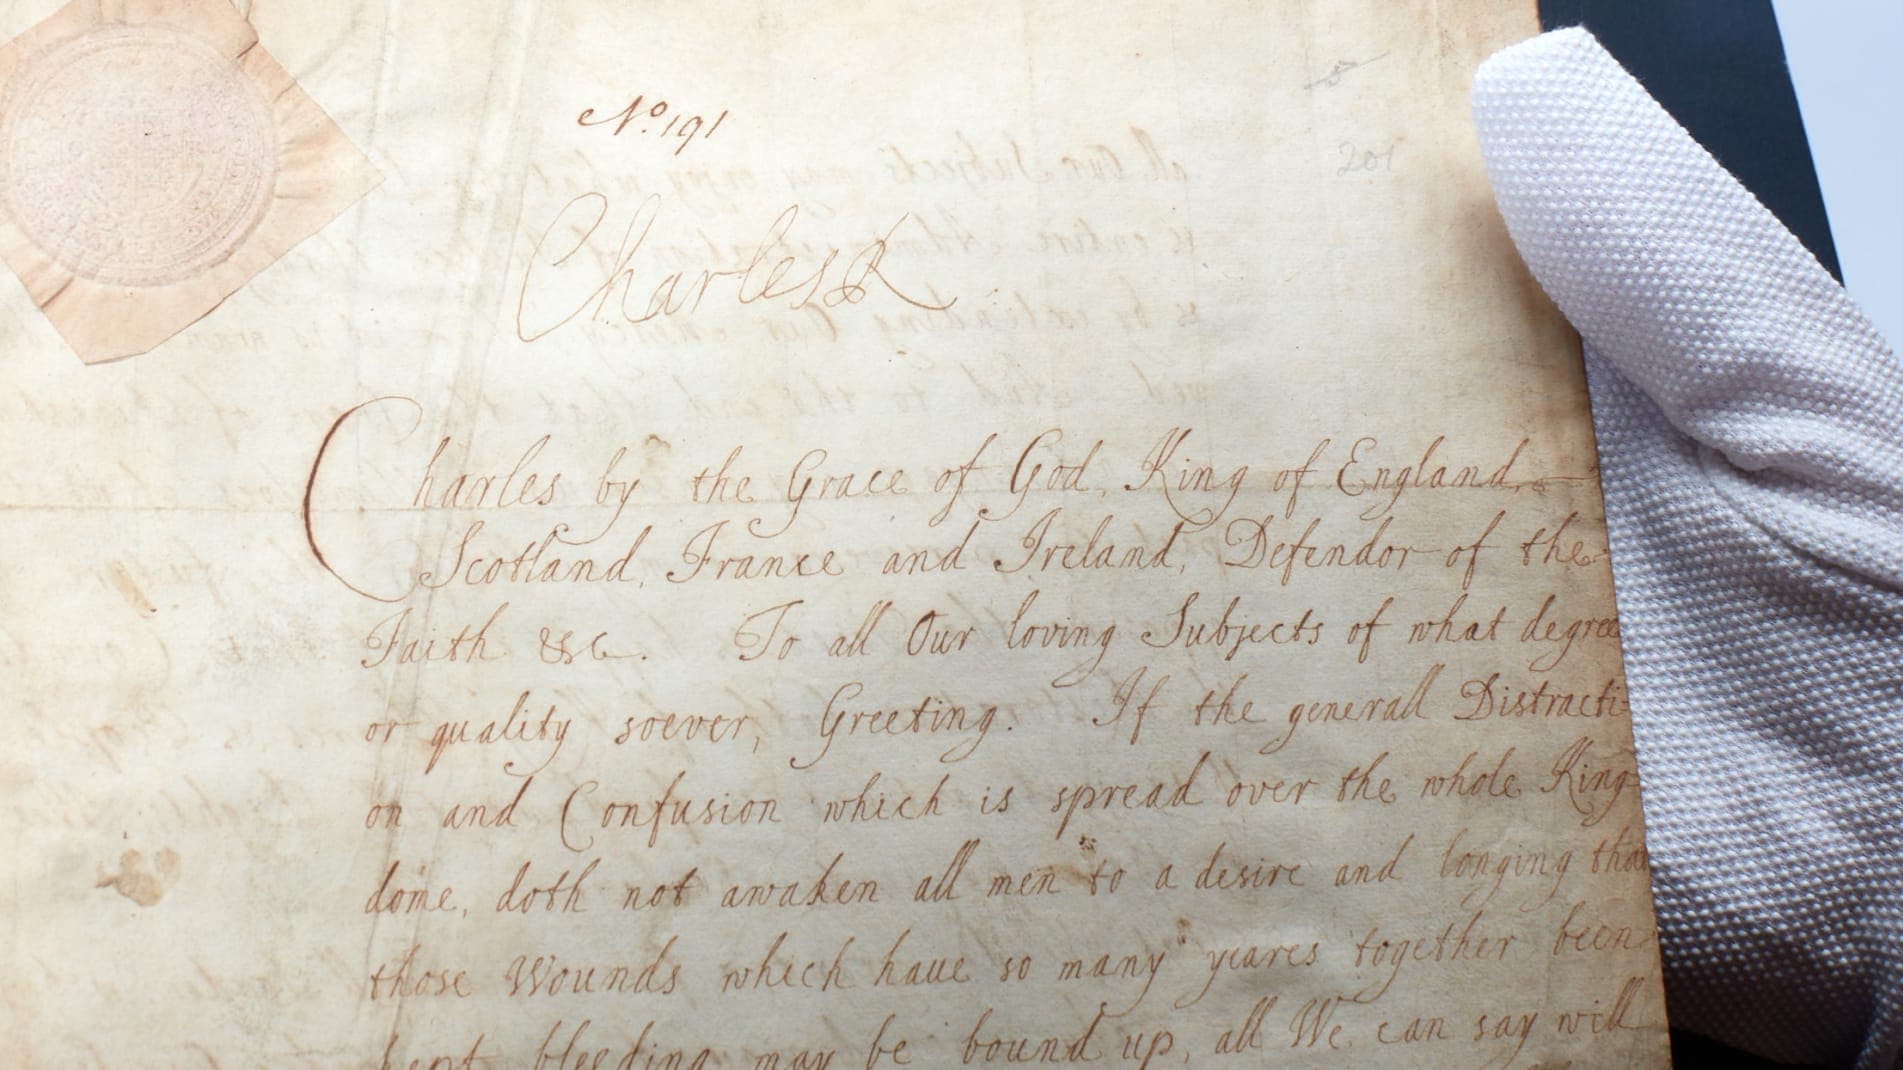 No. 191
201
Charles R
Charles by the Grace of God, King of England,
Scotland, France and Ireland, Defendor of the
Faith &c. To all Our loving Subjects of what degree
or quality soever, Greeting. If the generall Distracti-
on and Confusion which is spread over the whole King-
dome, doth not awaken all men to a desire and longing that
those Wounds which haue so many yeares together been
kept bleeding may be bound up, all We can say will